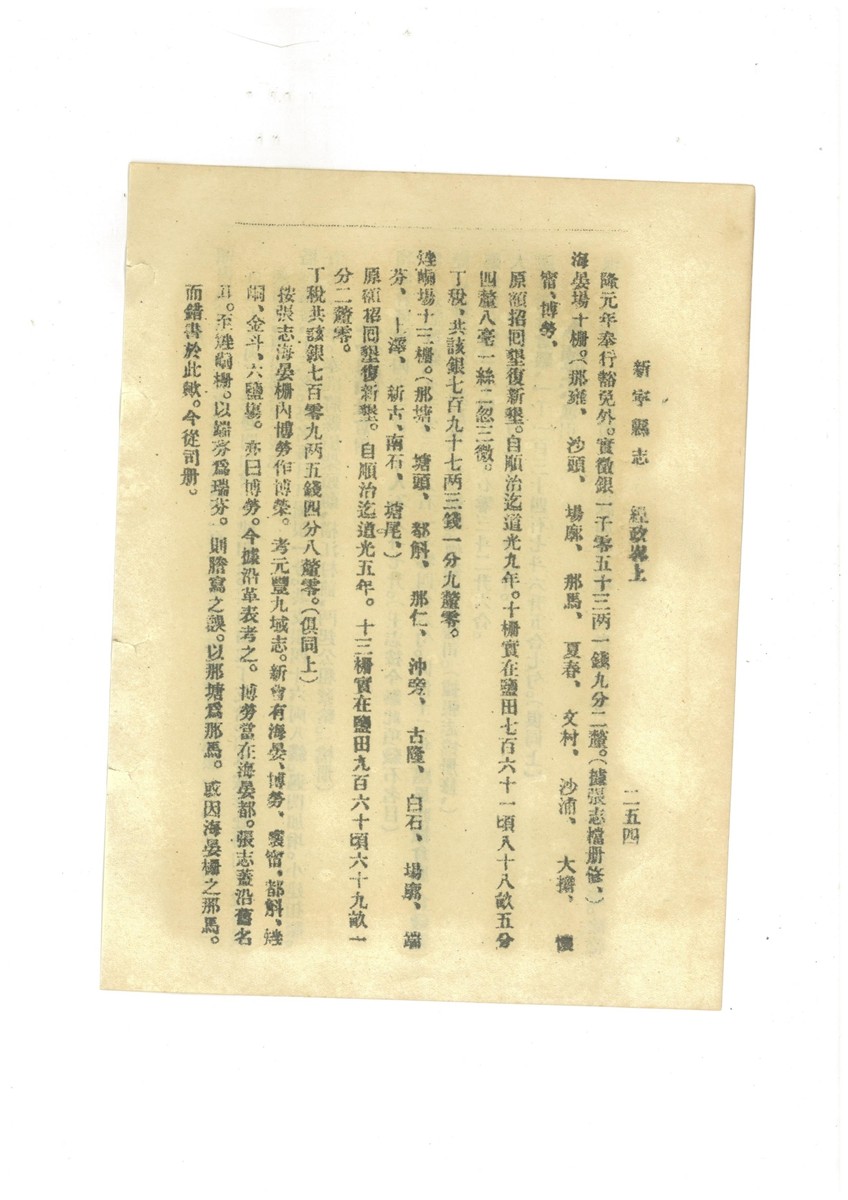 新寧縣志 經政畧上 二五四
隆元年奉行豁免外。實徵銀一千零五十三两一錢九分二釐。(據張志檔册修、)
海晏場十柵。(那雍、沙頭、場廓、那馬、夏春、文村、沙浦、大攔、懷
甯、博勞、
原額招囘墾復新墾。自順治迄道光九年。十柵實在鹽田七百六十一頃八十八畝五分
四釐八毫一絲二忽三微。
丁稅、共該銀七百九十七两三錢一分九釐零。
矬峒場十三柵。(那塘、塘頭、都斛、那仁、沖旁、古隆、白石、場廓、端
芬、上澤、新古、南石、塘尾、)
原額招囘墾復新墾。自順治迄道光五年。十三柵實在鹽田九百六十頃六十九畝一
分二釐零。
丁稅共該銀七百零九两五錢四分八釐零。(俱同上)
按張志海晏柵內博勞作博榮。考元豐九域志。新會有海晏、博勞、懷甯、都斛、矬
峒、金斗、六鹽場。亦曰博勞。今據沿革表考之。博勞當在海晏都。張志蓋沿舊名
耳。至矬峒柵。以端芬爲瑞芬。則謄寫之誤。以那塘爲那馬。或因海晏柵之那馬。
而錯書於此歟。今從司册。